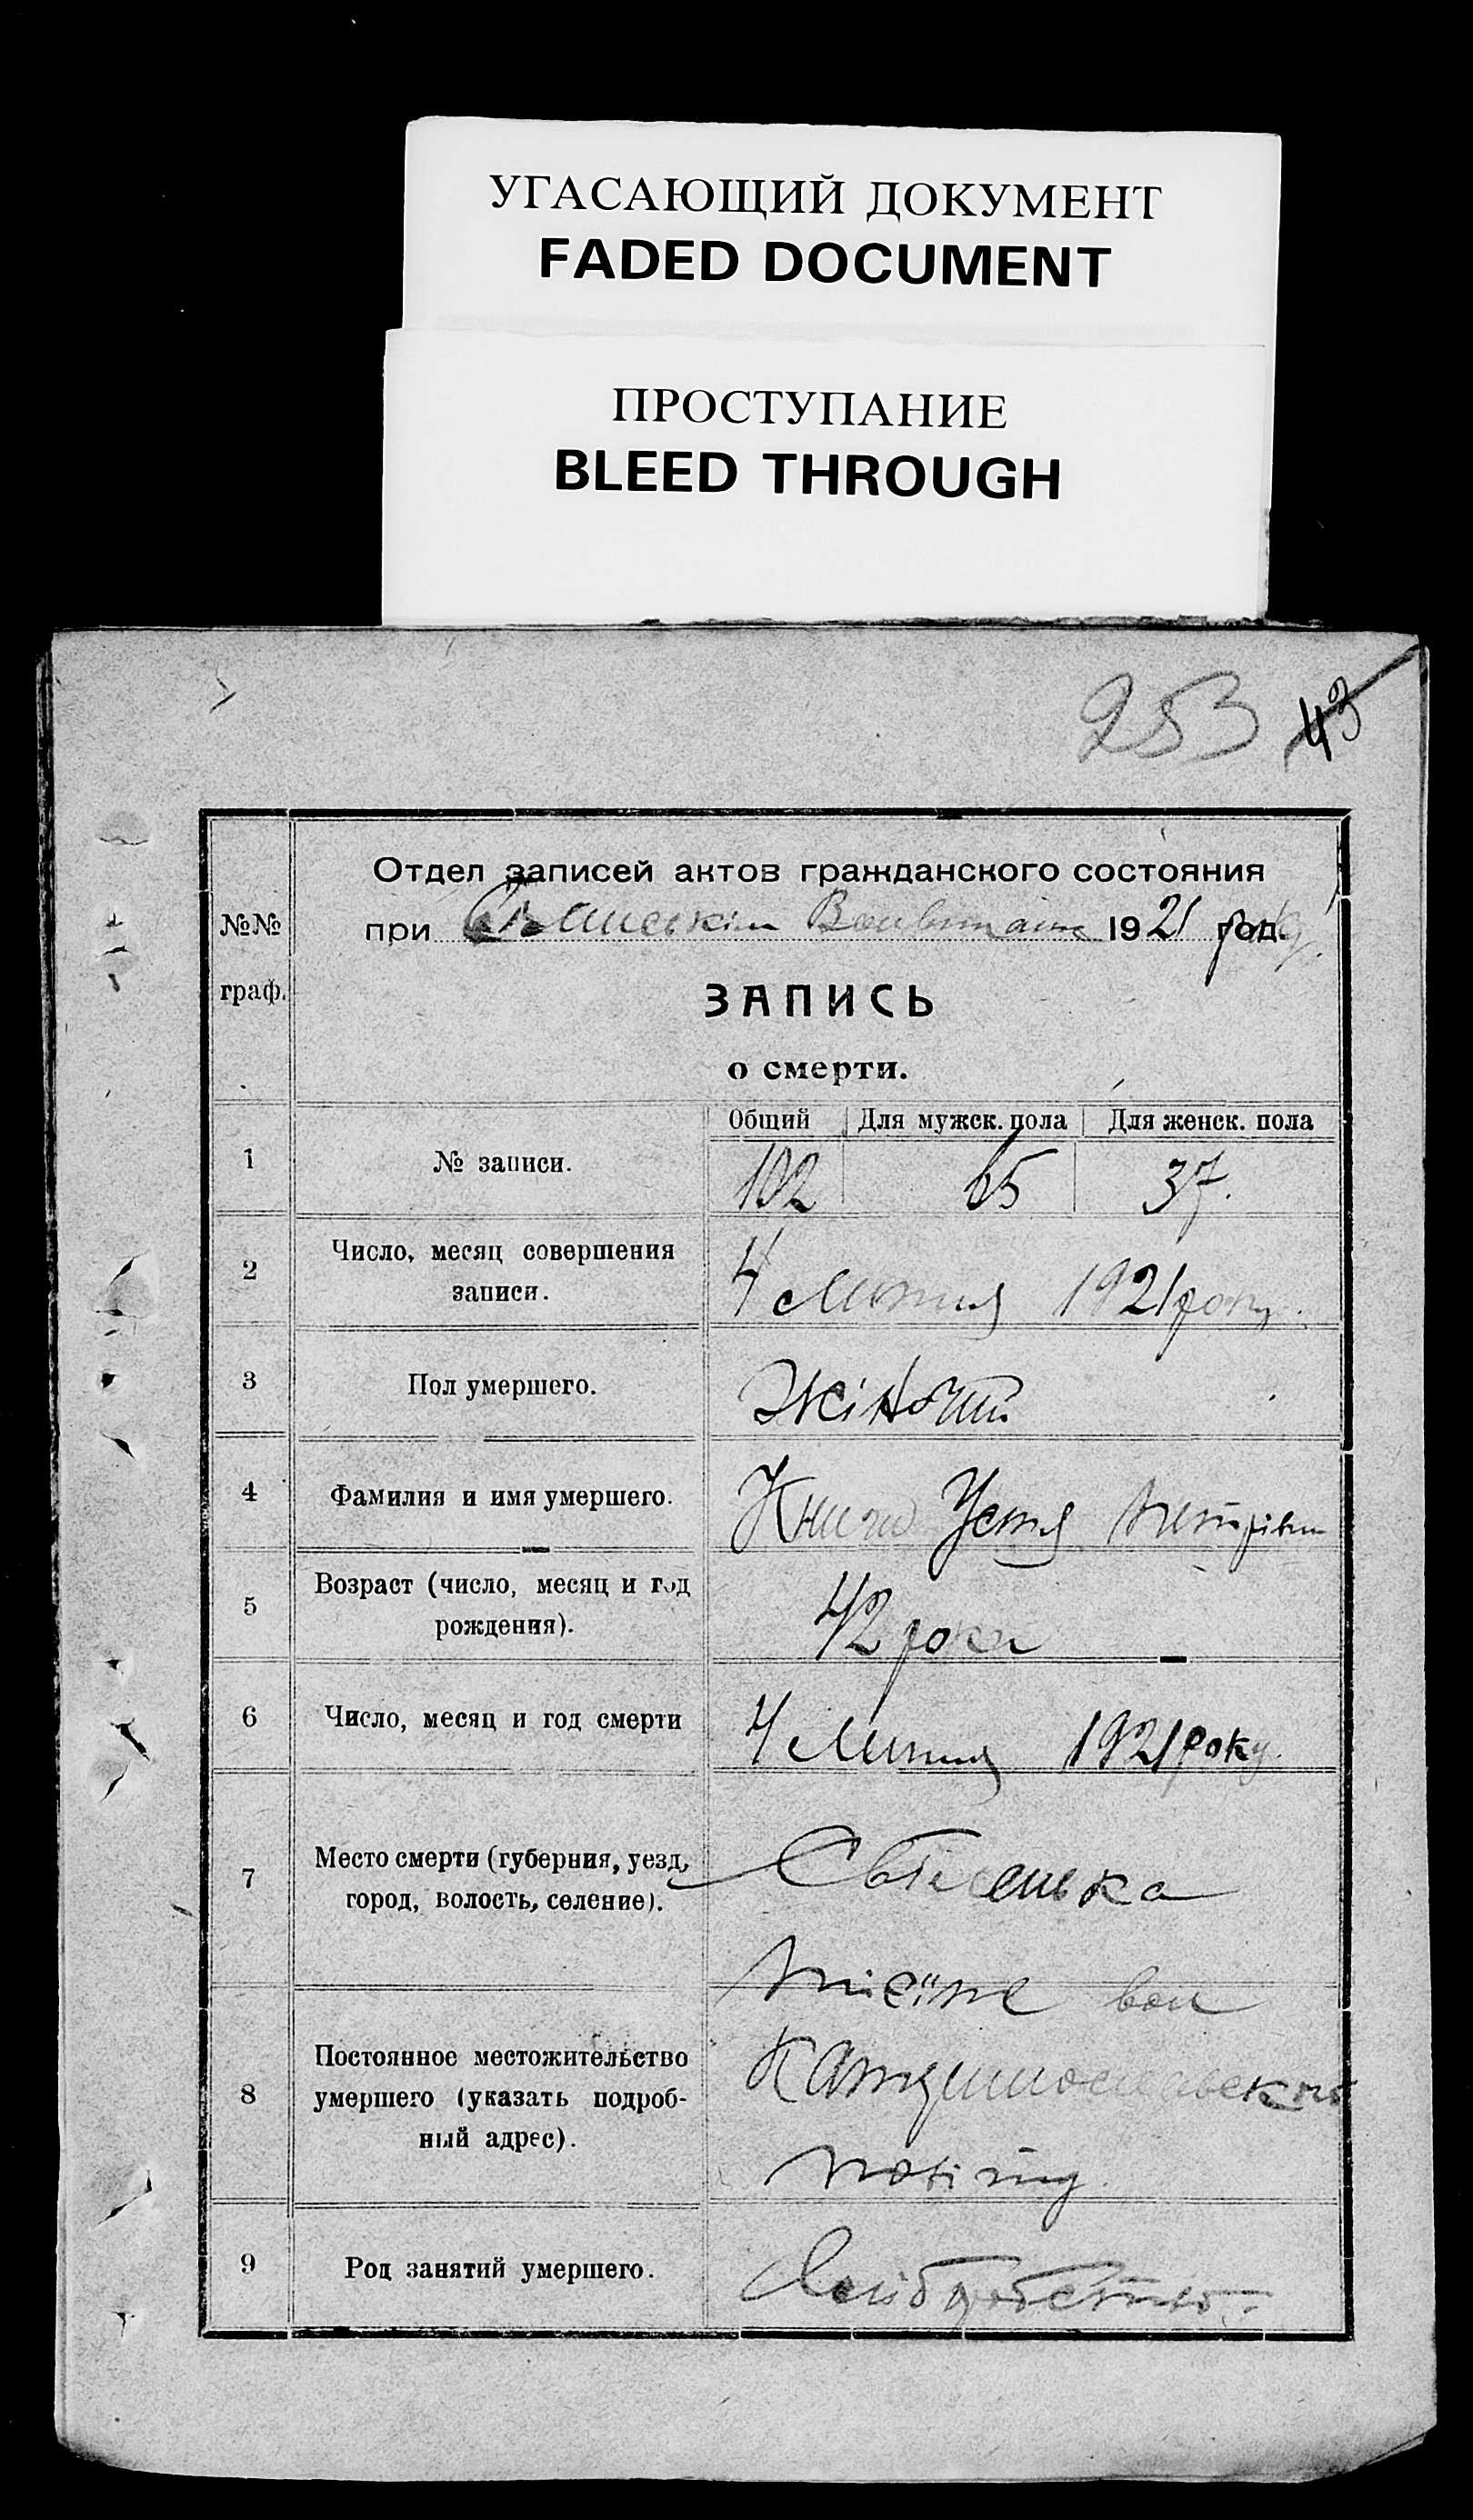 УГАСАЮЩИЙ ДОКУМЕНТ
FADED DOCUMENT
ПРОСТУПАНИЕ
BLEED THROUGH
253 43
Отдел записей актов гражданского состояния
при 1921 году
№№
граф.
ЗАПИСЬ
о смерти.
Общий Для мужск. пола Для женск. пола
1 № записи. 102 65 37.
2 Число, месяц совершения
записи.
4 Липня 1921 року.
3 Пол умершего. Жіночий
4 Фамилия и имя умершего. Устя Петрівна
5 Возраст (число, месяц и год
рождения).
42 роки
6 Число, месяц и год смерти 4 Липня 1921 року.
7 Место смерти (губерния, уезд,
город, волость, селение).
8 Постоянное местожительство
умершего (указать подроб-
ный адрес).
повіту
9 Род занятий умершего. Хліборобство